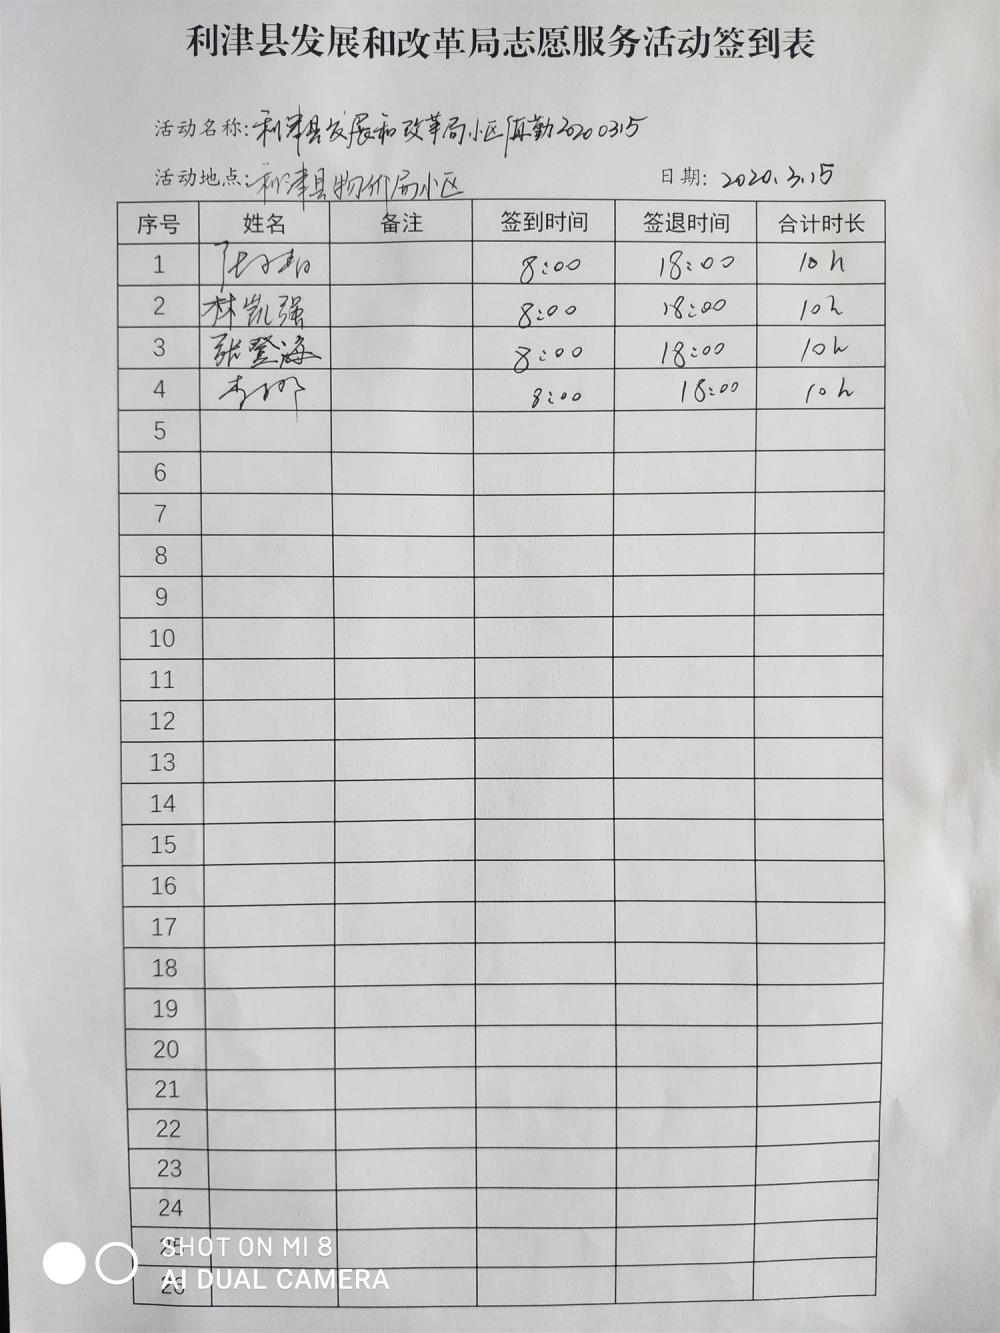 利津县发展和改革局志愿服务活动签到表
活动名称:利津县发展和改革局小区值勤20200315
活动地点:利津县物价局小区 日期: 2020.3.15
序号 姓名 备注 签到时间 签退时间 合计时长
1 8:00 18:00 10h
2 林凯强 8:00 18:00 10h
3 张登海 8:00 18:00 10h
4 李娜 8:00 18:00 10h
5
6
7
8
9
10
11
12
13
14
15
16
17
18
19
20
21
22
23
24
25
SHOT ON MI 8
26
AI DUAL CAMERA